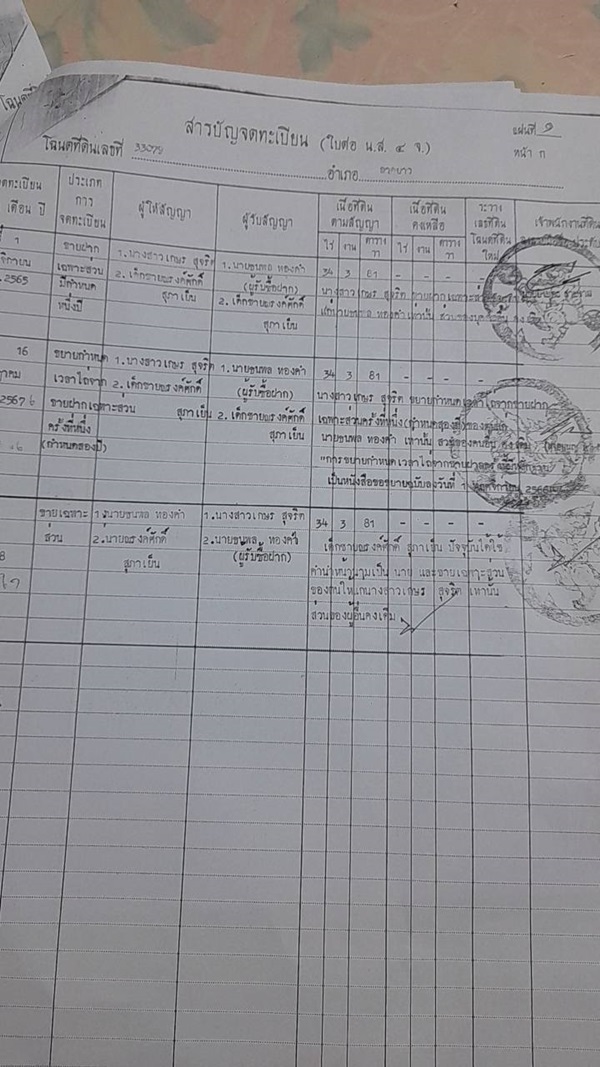 โฉนดที่
สารบัญจดทะเบียน (ใบต่อ น.ส. ๔ จ.)
แผ่นที่ 9
โฉนดที่ดินเลขที่ 33078 อำเภอ หน้า ก
จดทะเบียน เดือน ปี
ประเภทการจดทะเบียน
ผู้ให้สัญญา
ผู้รับสัญญา
เนื้อที่ดินตามสัญญา
ไร่ งาน ตารางวา
เนื้อที่ดินคงเหลือ
ไร่ งาน ตารางวา
ระวาง เลขที่ดิน โฉนดที่ดินใหม่
เจ้าพนักงานที่ดิน
1
2565
ขายฝาก
เฉพาะส่วน
มีกำหนด
หนึ่งปี
1.นางสาวเกษร สุจริต
2.เด็กชายณรงค์ศักดิ์
สุภาเย็น
1.นายธนพล ทองคำ
(ผู้รับซื้อฝาก)
2.เด็กชายณรงค์ศักดิ์
สุภาเย็น
34 3 81 - - - -
นางสาวเกษร สุจริต ขายฝากเฉพาะส่วน
แก่นายธนพล ทองคำ เท่านั้น ส่วนของบุคคลอื่นคงเดิม
16
2567
ขยายกำหนด
เวลาไถ่จาก
ขายฝากเฉพาะส่วน
ครั้งที่หนึ่ง
(กำหนดสองปี)
1.นางสาวเกษร สุจริต
2.เด็กชายณรงค์ศักดิ์
สุภาเย็น
1.นายธนพล ทองคำ
(ผู้รับซื้อฝาก)
2.เด็กชายณรงค์ศักดิ์
สุภาเย็น
34 3 81 - - - -
นางสาวเกษร สุจริต ขยายกำหนดเวลาไถ่จากขายฝาก
เฉพาะส่วนครั้งที่หนึ่ง(กำหนดสองปี)
นายธนพล ทองคำ เท่านั้น ส่วนของคนอื่น คงเดิม
"การขยายกำหนดเวลาไถ่จากขายฝาก
เป็นหนังสือขอขยายฉบับลงวันที่ 1 พฤศจิกายน 2566
ขายเฉพาะ
ส่วน
1.นายธนพล ทองคำ
2.นายณรงค์ศักดิ์
สุภาเย็น
1.นางสาวเกษร สุจริต
2.นายธนพล ทองคำ
(ผู้รับซื้อฝาก)
34 3 81 - - - -
เด็กชายณรงค์ศักดิ์ สุภาเย็น ปัจจุบันได้ใช้
คำนำหน้านามเป็น นาย และขายเฉพาะส่วน
ของตนให้แก่นางสาวเกษร สุจริต เท่านั้น
ส่วนของผู้อื่นคงเดิม